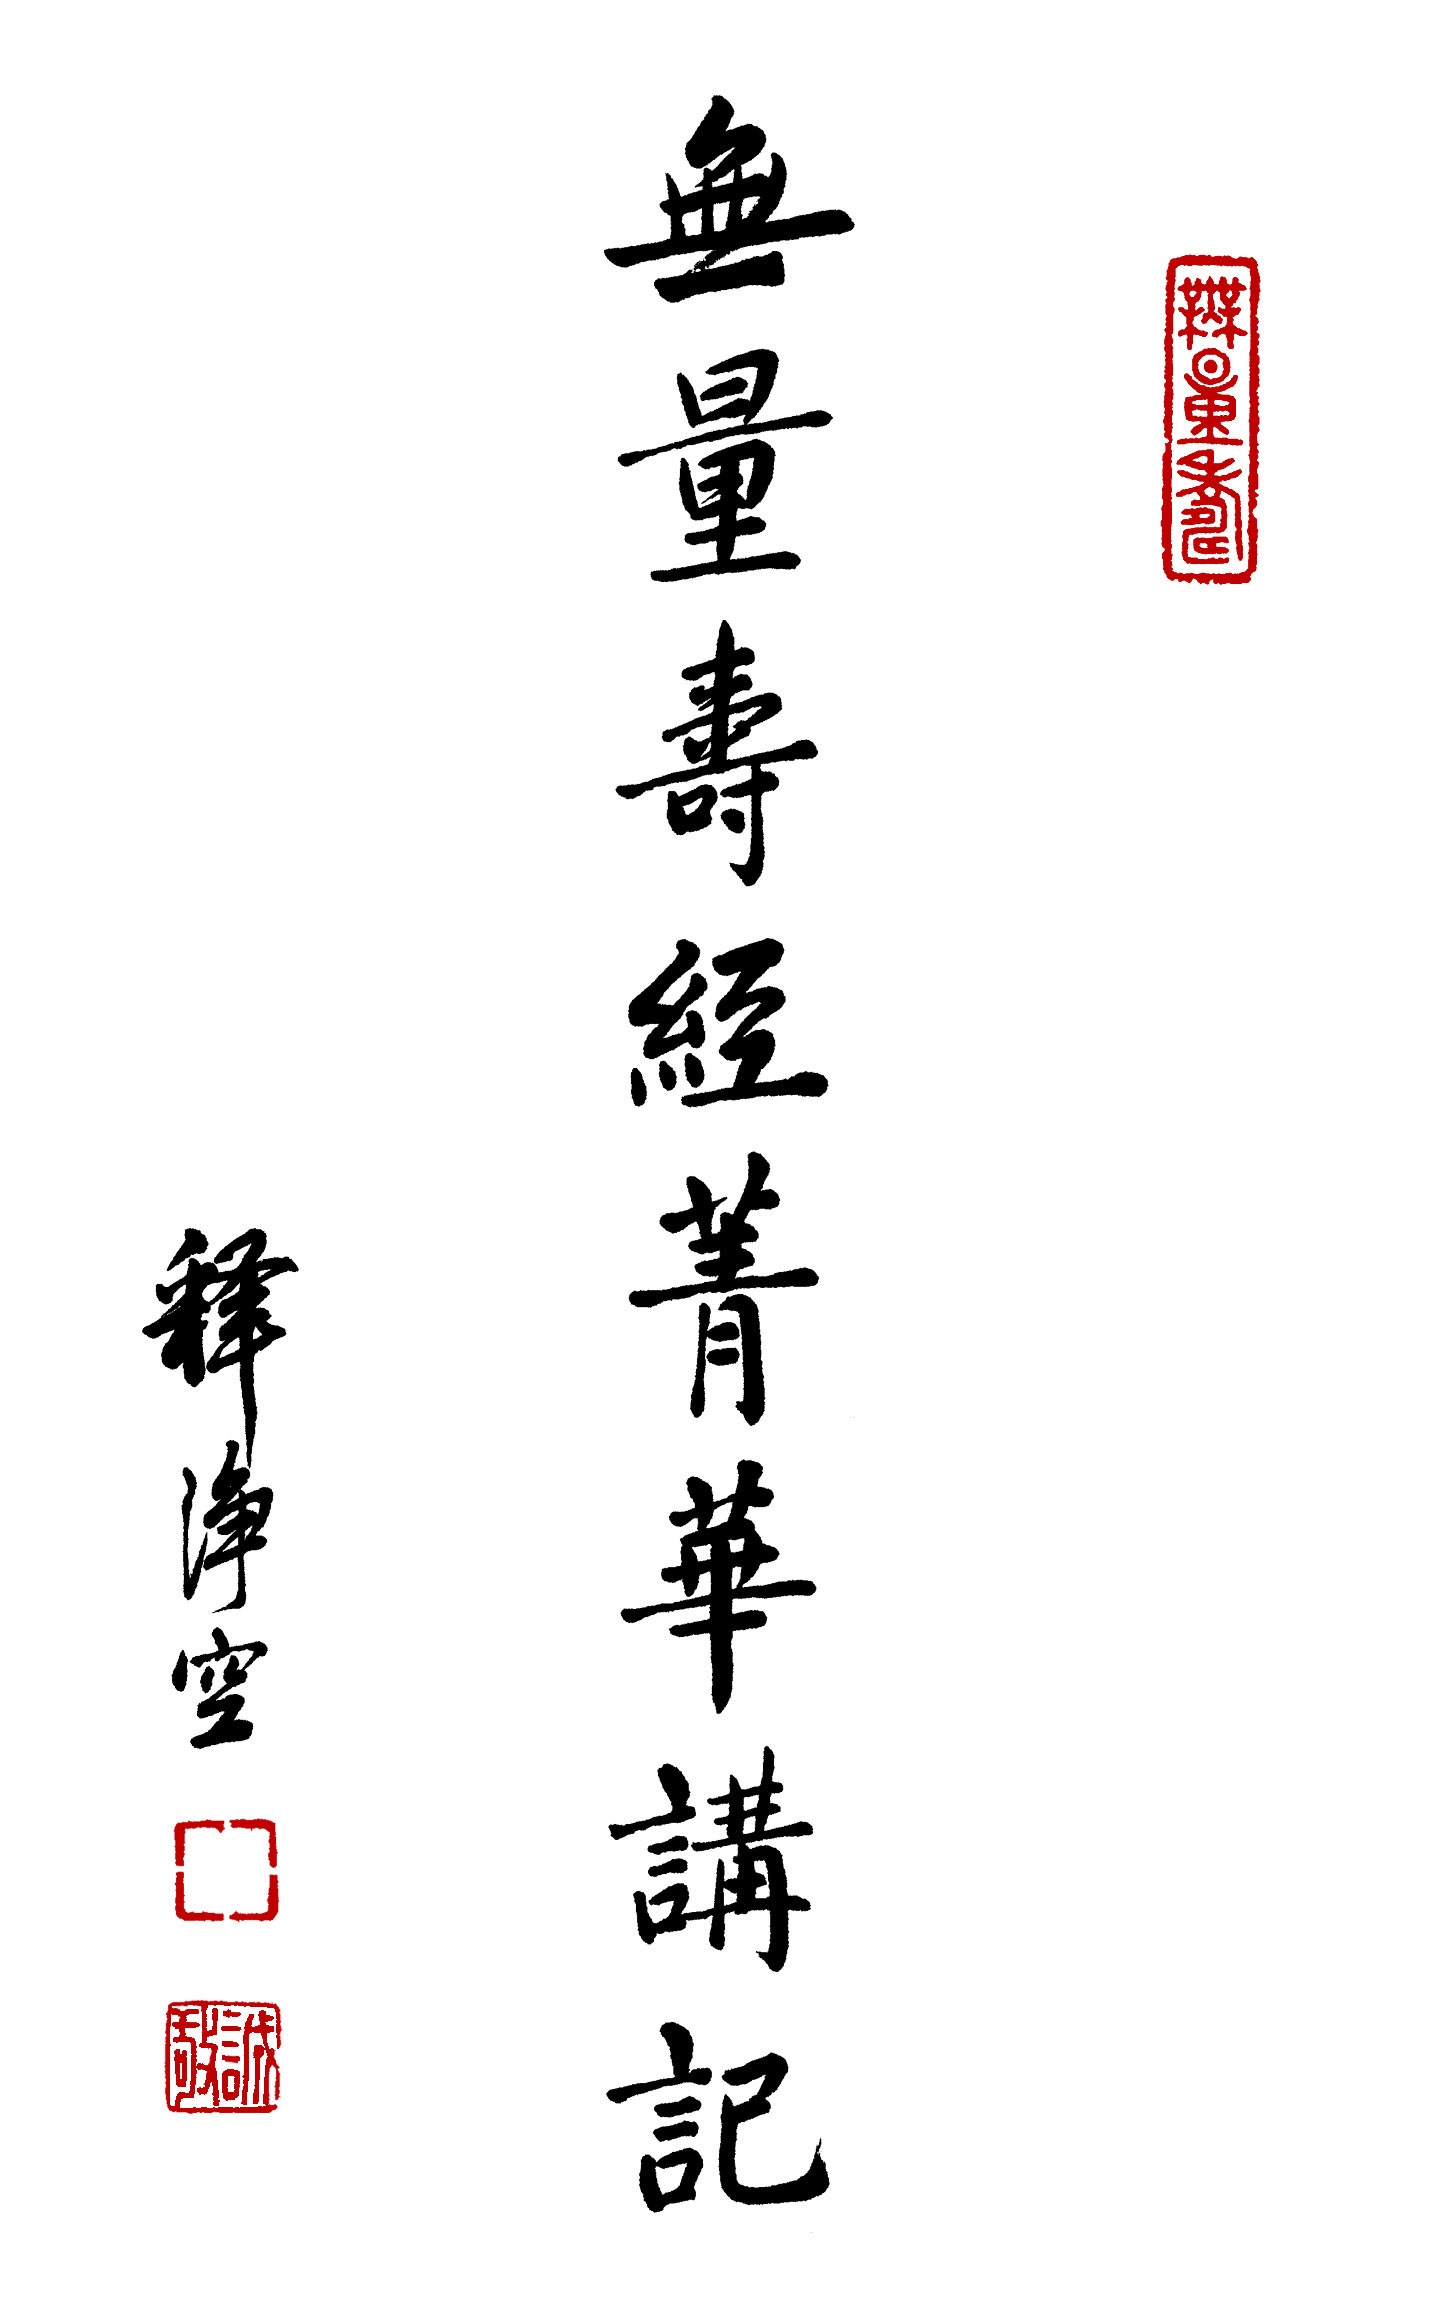 無量壽
無量壽經菁華講記
釋淨空
誠敬